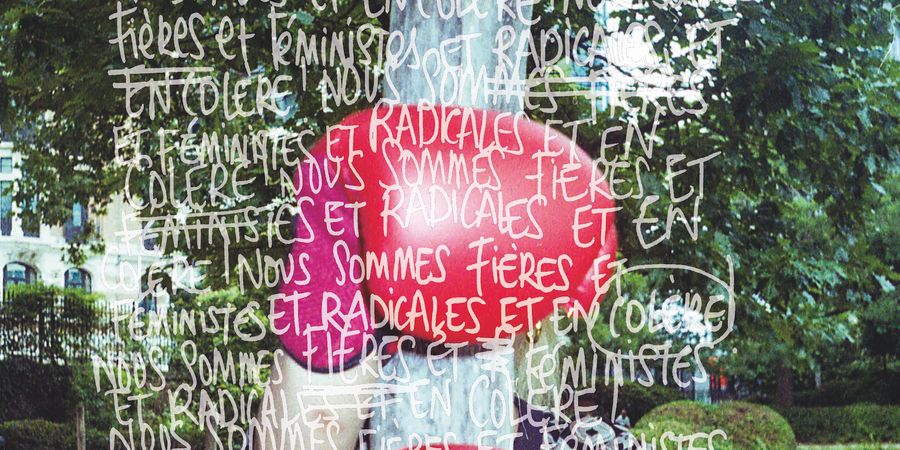 ET EN COLÈRE
fières et féministes ET RADICALES ET
EN COLÈRE ! NOUS SOMMES FIÈRES
ET FÉMINISTES ET RADICALES ET EN
COLÈRE NOUS SOMMES FIÈRES ET
FÉMINISTES ET RADICALES ET EN
COLÈRE ! NOUS SOMMES FIÈRES ET
FÉMINISTES ET RADICALES ET EN COLÈRE
NOUS SOMMES FIÈRES ET FÉMINISTES
ET RADICALES ET EN COLÈRE !
NOUS SOMMES FIÈRES ET FÉMINISTES